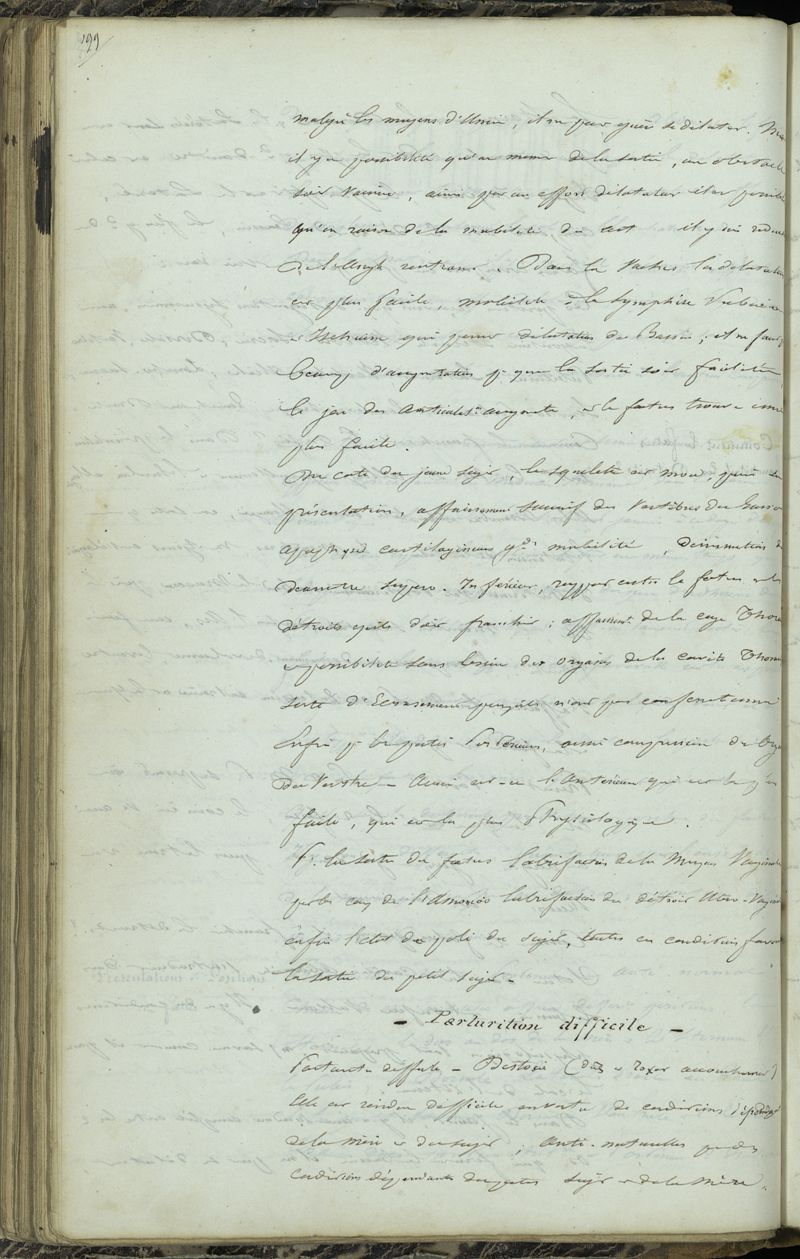 299
malgré les moyens d'Union, il ne peut guère se dilater.
il y a possibilité qu'au moment de la sortie, un obstacle
soit vaincu, ainsi par un effort dilatateur il est possible
qu'en raison de la mobilité, du il y ait
de l'Angle rentrant. Dans la Vache la dilatation
est plus facile, mobilité de la Symphise Pubienne
Ischiale qui permet dilatation du Bassin, il ne faut
beaucoup d'augmentation pr que la sortie soit facilitée,
le jeu des augmente, et le foetus trouve issue
plus facile.
Du coté du jeune sujet, le squelette est mou, puis sa
présentation, affaissement successif des Vertèbres du
apophyses cartilagineuses gde mobilité, Diminution du
diamètre supero-Inférieur, rapport entre le foetus et les
détroits qu'il doit franchir ; affaissemt de la cage Thora
possibilité sans lésion des organes de la cavité Thora
sorte d'Ecrasement puisqu'ils n'ont pas
Enfin pr les parties Postérieures, aussi compression des
du Ventre - Aussi est-ce l'Antérieure qui est la plus
facile, qui est la plus Physiologique.
P. la sortie du foetus lubrifaction de la Muqueuse Vagin
par les eaux de l'Amnios lubrifaction du détroit Utero-Vag
enfin l'état du poil du sujet, toutes ces conditions favor
la sortie du petit sujet -
- Parturition difficile -
Parturition difficile - Dystocie ( accouchement)
Elle est rendue difficile en vertu de conditions dépendant
de la mère et du sujet ; Anti-naturelles par des
conditions dépendantes du petit sujet et de la Mère.